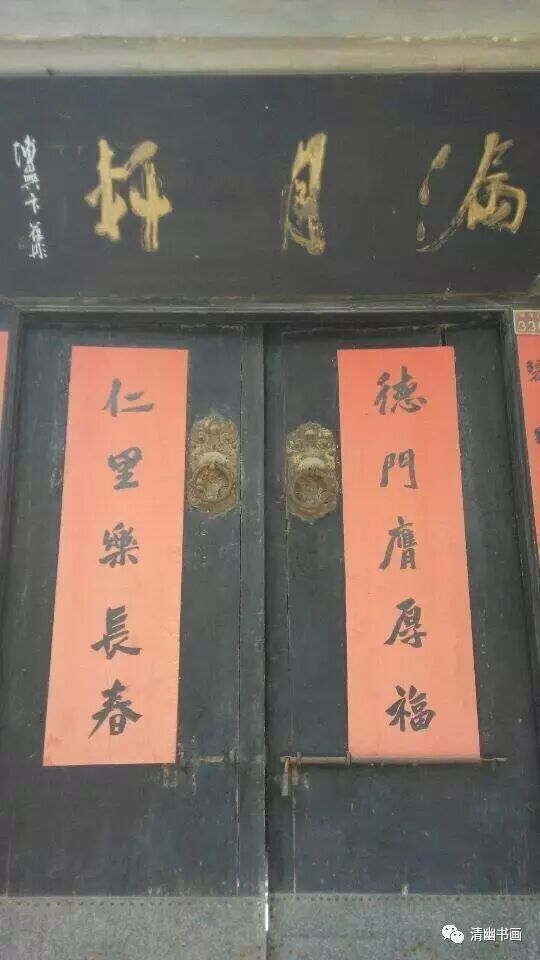 漏月軒
德門膺厚福
仁里樂長春
清幽书画